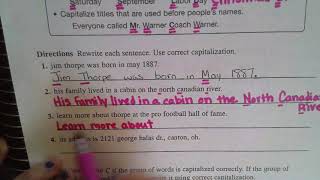 Saturday September Labor Day Christmas
• Capitalize titles that are used before people's names.
Everyone called Mr. Warner Coach Warner.
Directions Rewrite each sentence. Use correct capitalization.
1. jim thorpe was born in may 1887.
Jim Thorpe was born in May 1887.
2. his family lived in a cabin on the north canadian river.
His family lived in a cabin on the North Canadian
River
3. learn more about thorpe at the pro football hall of fame.
Learn more about
4. its is 2121 george halas dr., canton, oh.
the C if the group of words is capitalized correctly. If the group of